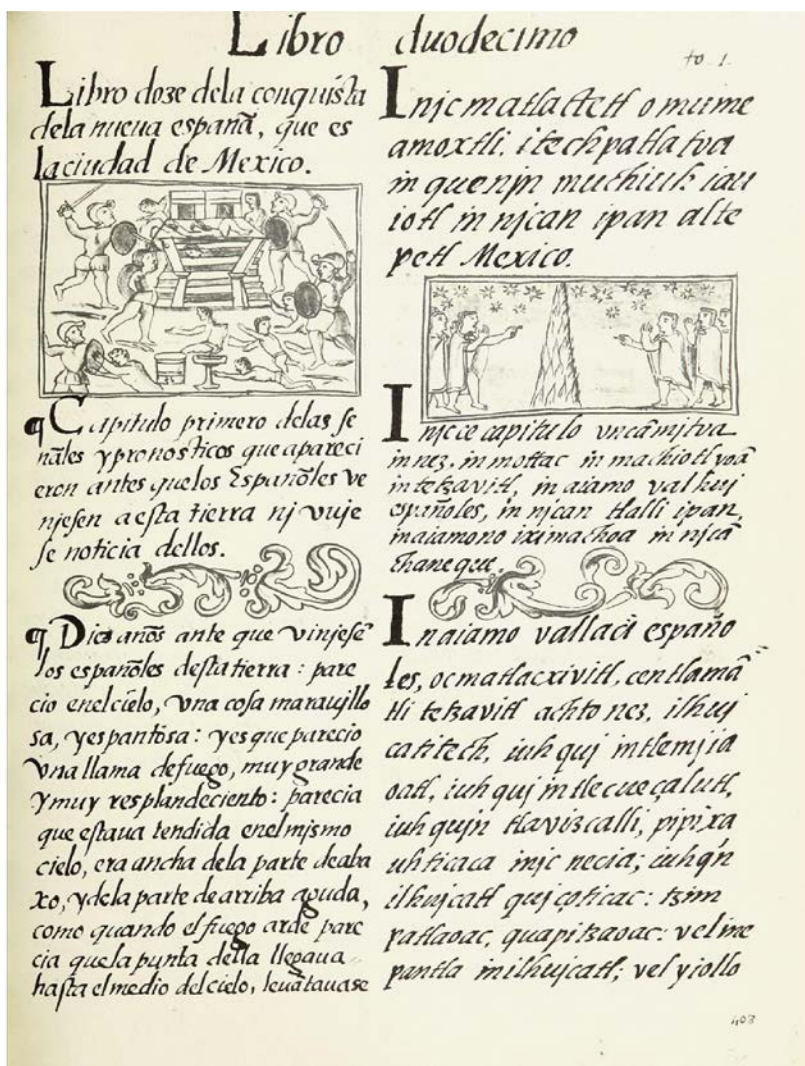 Libro duodecimo
fo. 1.
Libro doze dela conquista
dela nueua españa, que es
la ciudad de Mexico.
¶ Capitulo primero delas se
ñales y pronosticos que apareci
eron antes quelos Españoles ve
njesen a esta tierra nj vuje
se noticia dellos.
¶ Diez años ante que vinjesẽ
los españoles desta tierra: pare
cio enel cielo, vna cosa marauillo
sa, y espantosa: y es que parecio
vna llama de fuego, muy grande
y muy resplandeciento: parecia
que estaua tendida enel mismo
cielo, era ancha dela parte de aba
xo, y dela parte de arriba aguda,
como quando el fuego arde pare
cia que la punta della llegaua
hasta el medio del cielo, leuãtauase
Injc matlactetl omume
amoxtli. itechpatlatoa
in quenjn muchiuh iau
iotl in njcan ipan alte
petl Mexico.
Injc ce capitulo vncã mjtoa
in nez, in mottac in machiotl yoã
in tetzavitl, in aiamo valhuj
españoles, in njcan tlalli ipan,
in aiamono iximachoa in njcã
chaneque.
In aiamo vallaci españo
les, oc matlacxivitl, centlamã
tli tetzavitl achto nez, ilhuj
catitech, iuh quj in tlemjia
oatl, iuh quj in tlecueçalutl,
iuh qujn tlavizcalli, pipixa
uhticaca injc necia; iuhq̃n
ilhujcatl qujçoticac: tzim
patlaoac, quapitzaoac: vel ine
pantla in ilhujcatl; vel yiollo
408